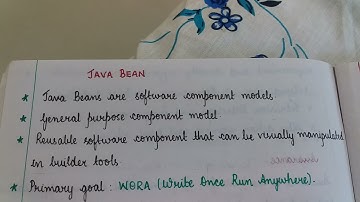 JAVA BEAN
* Java Beans are software component models
* General purpose component model
* Reusable software component that can be visually manipulated
in builder tools
* Primary goal : WORA (Write Once Run Anywhere).